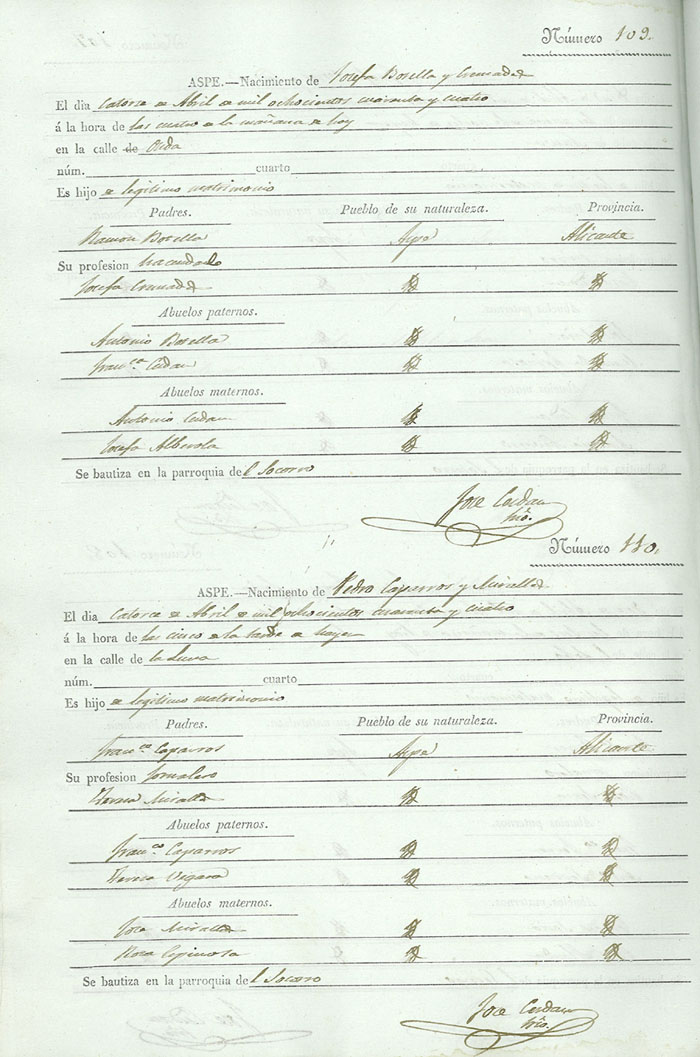 Número 109.
ASPE.—Nacimiento de Josefa Botella y Cremades
El dia catorce de Abril de mil ochocientos cuarenta y cuatro
á la hora de las cuatro de la mañana de hoy
en la calle de Onda
núm. cuarto
Es hijo de legitimo matrimonio
Padres. Pueblo de su naturaleza. Provincia.
Ramon Botella Aspe Alicante
Su profesion hacendado
Josefa Cremades
Abuelos paternos.
Antonio Botella
Fran.ca Cerdan
Abuelos maternos.
Antonio Cerdan
Josefa Alberola
Se bautiza en la parroquia del Socorro
Jose Cerdan
Srio.
Número 110.
ASPE.—Nacimiento de Pedro Caparros y Miralles
El dia catorce de Abril de mil ochocientos cuarenta y cuatro
á la hora de las cinco de la tarde de
en la calle de la
núm. cuarto
Es hijo de legitimo matrimonio
Padres. Pueblo de su naturaleza. Provincia.
Fran.co Caparros Aspe Alicante
Su profesion Jornalero
Teresa Miralles
Abuelos paternos.
Fran.co Caparros
Teresa Vegara
Abuelos maternos.
Jose Miralles
Rosa Espinosa
Se bautiza en la parroquia del Socorro
Jose Cerdan
Srio.